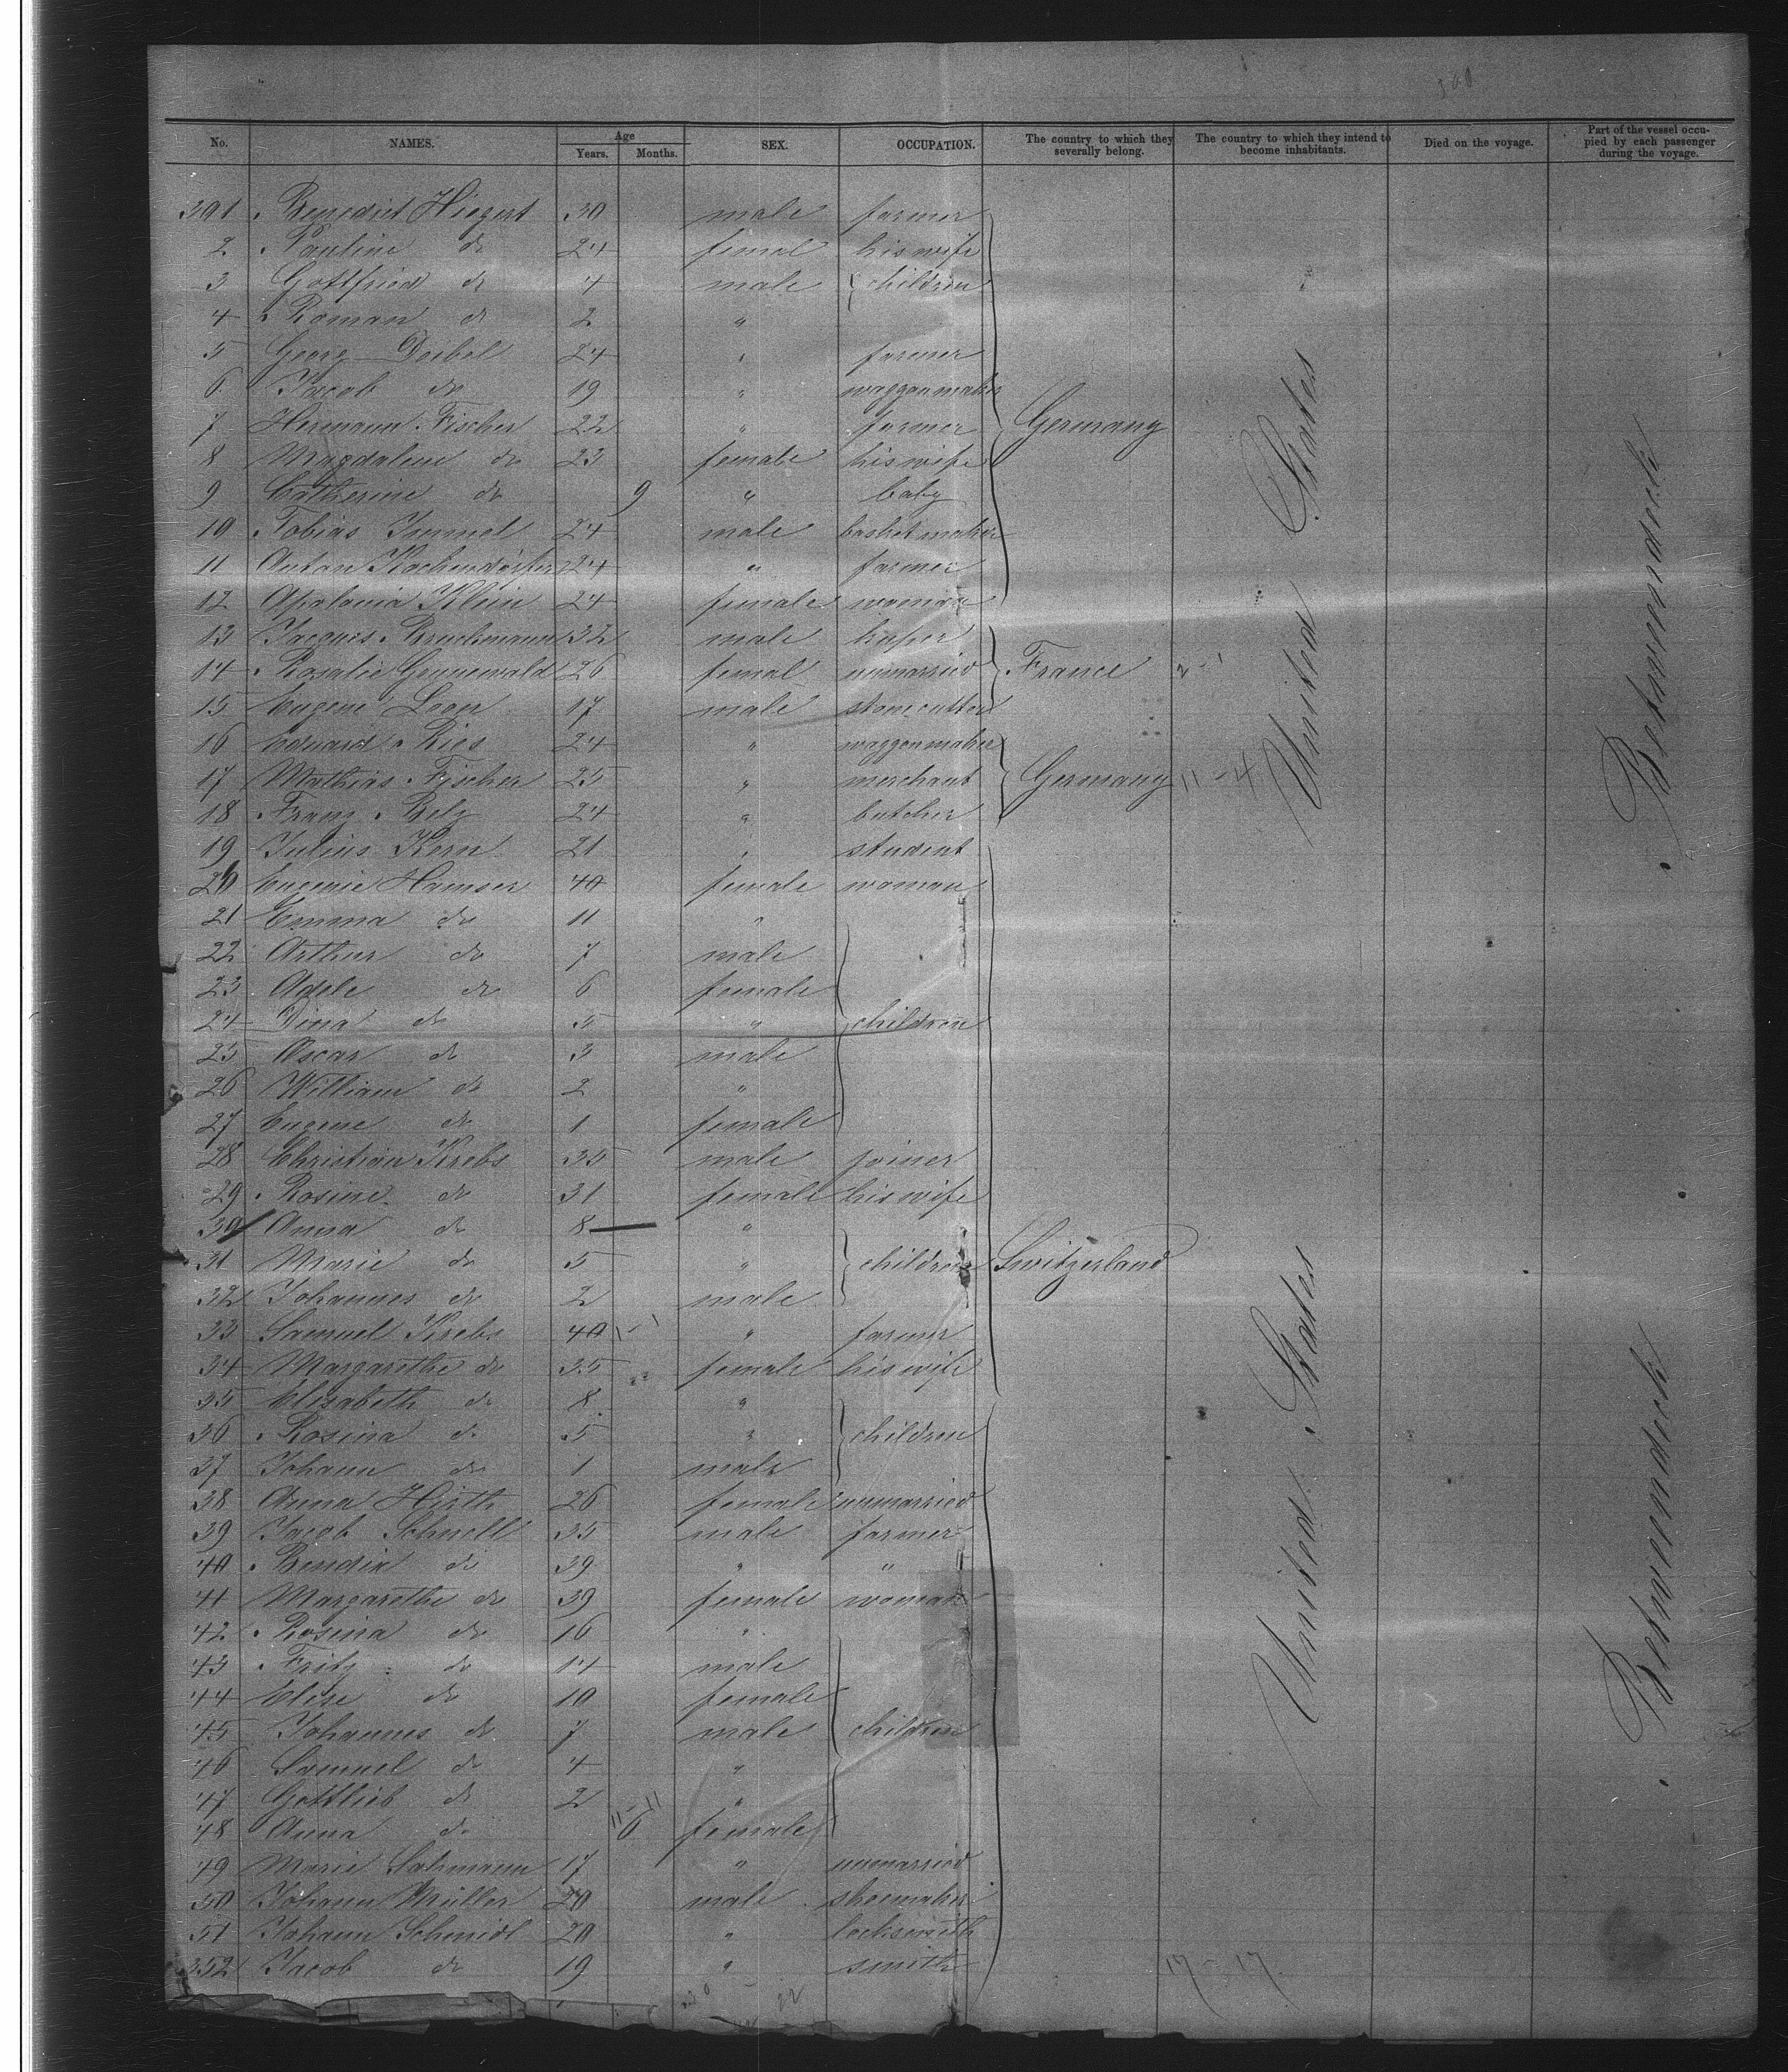 No. NAMES. Age Years. Months. SEX. OCCUPATION. The country to which they severally belong. The country to which they intend to become inhabitants. Died on the voyage. Part of the vessel occupied by each passenger during the voyage.
301 Benedict Hiegert 30 male farmer
2 Pauline do 24 femal his wife
3 Gottfried do 4 male children
4 Roman do 2 "
5 Georg Deibel 24 " farmer
6 Jacob do 19 " waggonmaker
7 Hermann Fischer 22 " farmer Germany
8 Magdalene do 23 female his wife
9 Catherine do 9 " baby
10 Tobias Immel 24 male basket maker
11 Anton 24 " farmer
12 Apolonia Klein 24 female woman
13 Jacques Bruchmann 32 male
14 Rosalie Grunewald 26 femal unmarried France 2-1
15 Eugene Leon 17 male stonecutter
16 Eduard Ries 24 " waggonmaker
17 Mathias Fischer 25 " merchant Germany 11-4
18 Franz Belz 24 " butcher
19 Julius Kern 21 " student
20 Eugenie Hamser 40 female woman
21 Emma do 11 "
22 Arthur do 7 male
23 Adele do 6 female
24 Dina do 5 " children
25 Oscar do 3 male
26 William do 2 "
27 Eugene do 1 female
28 Christian Krebs 35 male joiner
29 Rosine do 31 female his wife
30 Anna do 8 "
31 Marie do 5 " children Switzerland
32 Johannes do 2 male
33 Samuel Krebs 40 1-1 " farmer
34 Margarethe do 35 female his wife
35 Elisabeth do 8 "
36 Rosina do 5 " children
37 Johann do 1 male
38 Anna Hirth 26 female unmarried
39 Jacob Schnell 35 male farmer
40 Bendix do 39 " "
41 Margarethe do 39 female woman
42 Rosina do 16 "
43 Fritz do 14 male
44 Elise do 10 female
45 Johannes do 7 male children
46 Samuel do 4 "
47 Gottlieb do 2 "
48 Anna do 6 female
11-11
49 Marie Salzmann 17 " unmarried
50 Johann Müller 20 male shoemaker
51 Johann Schmidt 20 " locksmith
352 Jacob do 19 " smith 17-17
United States
United States
Betweendeck
Betweendeck